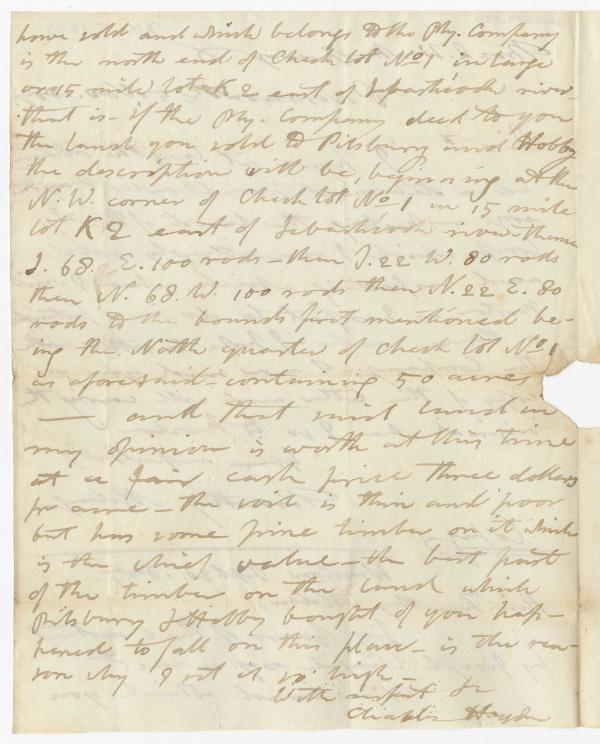 have sold and which belongs to the Ply. Company
is the north end of Check lot No 1 in large
or 15 mile lot K 2 east of Sebasticook river
that is - if the Ply. Company deed to you
the land you sold to Pilsbury and Hobby
the description will be, beginning at the
N. W. corner of Check lot No 1 in 15 mile
lot K 2 east of Sebasticook river - thence
S. 68. E. 100 rods - then S. 22 W. 80 rods
then N. 68. W. 100 rods then N. 22 E. 80
rods to the bounds first mentioned be-
ing the North quarter of Check lot No 1
as aforesaid - containing 50 acres
— and that said land in
my opinion is worth at this time
at a fair cash price three dollars
pr acre - the soil is thin and poor
but has some pine timber on it which
is the chief value - the best part
of the timber on the land which
Pilsbury & Hobby bought of you hap-
pened to fall on this place - is the rea-
son why I set it so high -
With respect &c
Charles Hayden